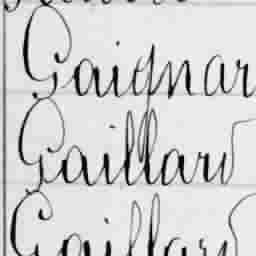 Gaignar
Gaillard
Gaillard